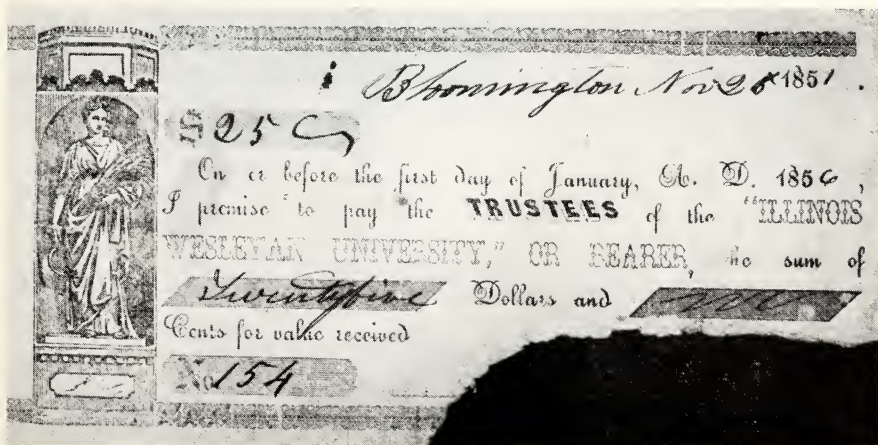 Bloomington Nov 20 1851.
$25
On or before the first day of January, A. D. 1856,
I promise to pay the TRUSTEES of the "ILLINOIS
WESLEYAN UNIVERSITY," OR BEARER, the sum of
Twentyfive Dollars and
Cents for value received
No 154